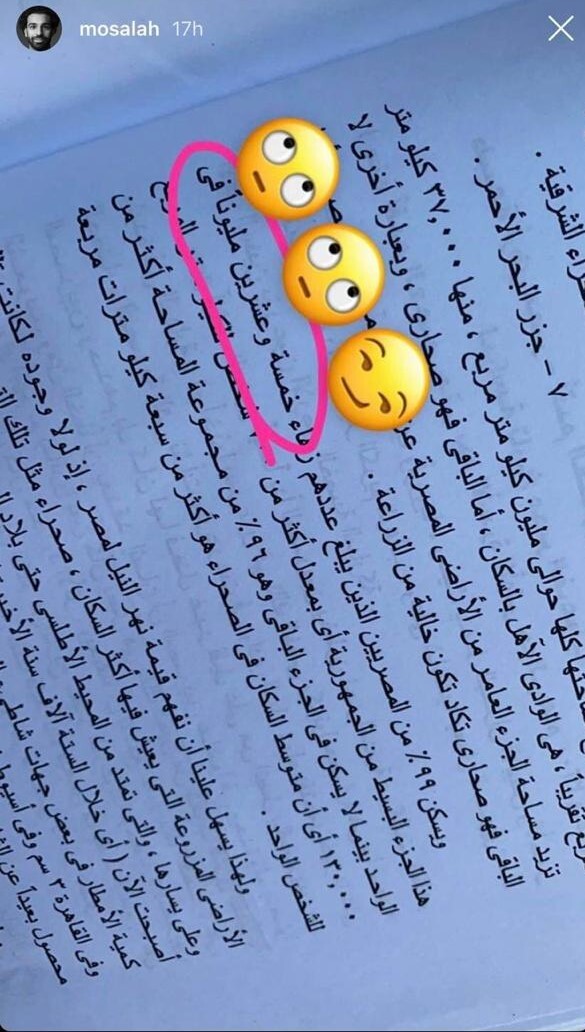 mosalah 17h
الشرقية .
٧ - جزر البحر الأحمر .
كلها حوالى مليون كيلو متر مربع ، منها ٣٧,٠٠٠ كيلو متر
تقريباً ، هى الوادى الآهل بالسكان ، أما الباقى فهو صحارى ، وبعبارة أخرى لا
تزيد مساحة الجزء العامر من الأراضى المصرية عن
الباقى فهو صحارى تكاد تكون خالية من الزراعة .
ويسكن ٩٩٪ من المصريين الذين يبلغ عددهم زهاء خمسة وعشرين مليوناً فى
هذا الجزء البسيط من الجمهورية أى بمعدل أكثر من شخص المربع
الواحد بينما لا يسكن فى الجزء الباقى وهو ٩٦٪ من مجموعة المساحة أكثر من
١٣٠,٠٠٠ أى أن متوسط السكان فى الصحراء هو أكثر من سبعة كيلو مترات مربعة
للشخص الواحد .
ولهذا يسهل علينا أن نفهم قيمة نهر النيل لمصر ، إذ لولا وجوده لكانت
الأراضى المزروعة التى يعيش فيها أكثر السكان ، صحراء مثل تلك
وعلى يسارها ، والتى تمتد من المحيط الأطلسى حتى بلاد
أصبحت الآن ( أى خلال الستة آلاف سنة
كمية الأمطار فى بعض جهات شاطئ
وفى القاهرة ٣ سم وفى أسيوط
محصول بعيداً عن